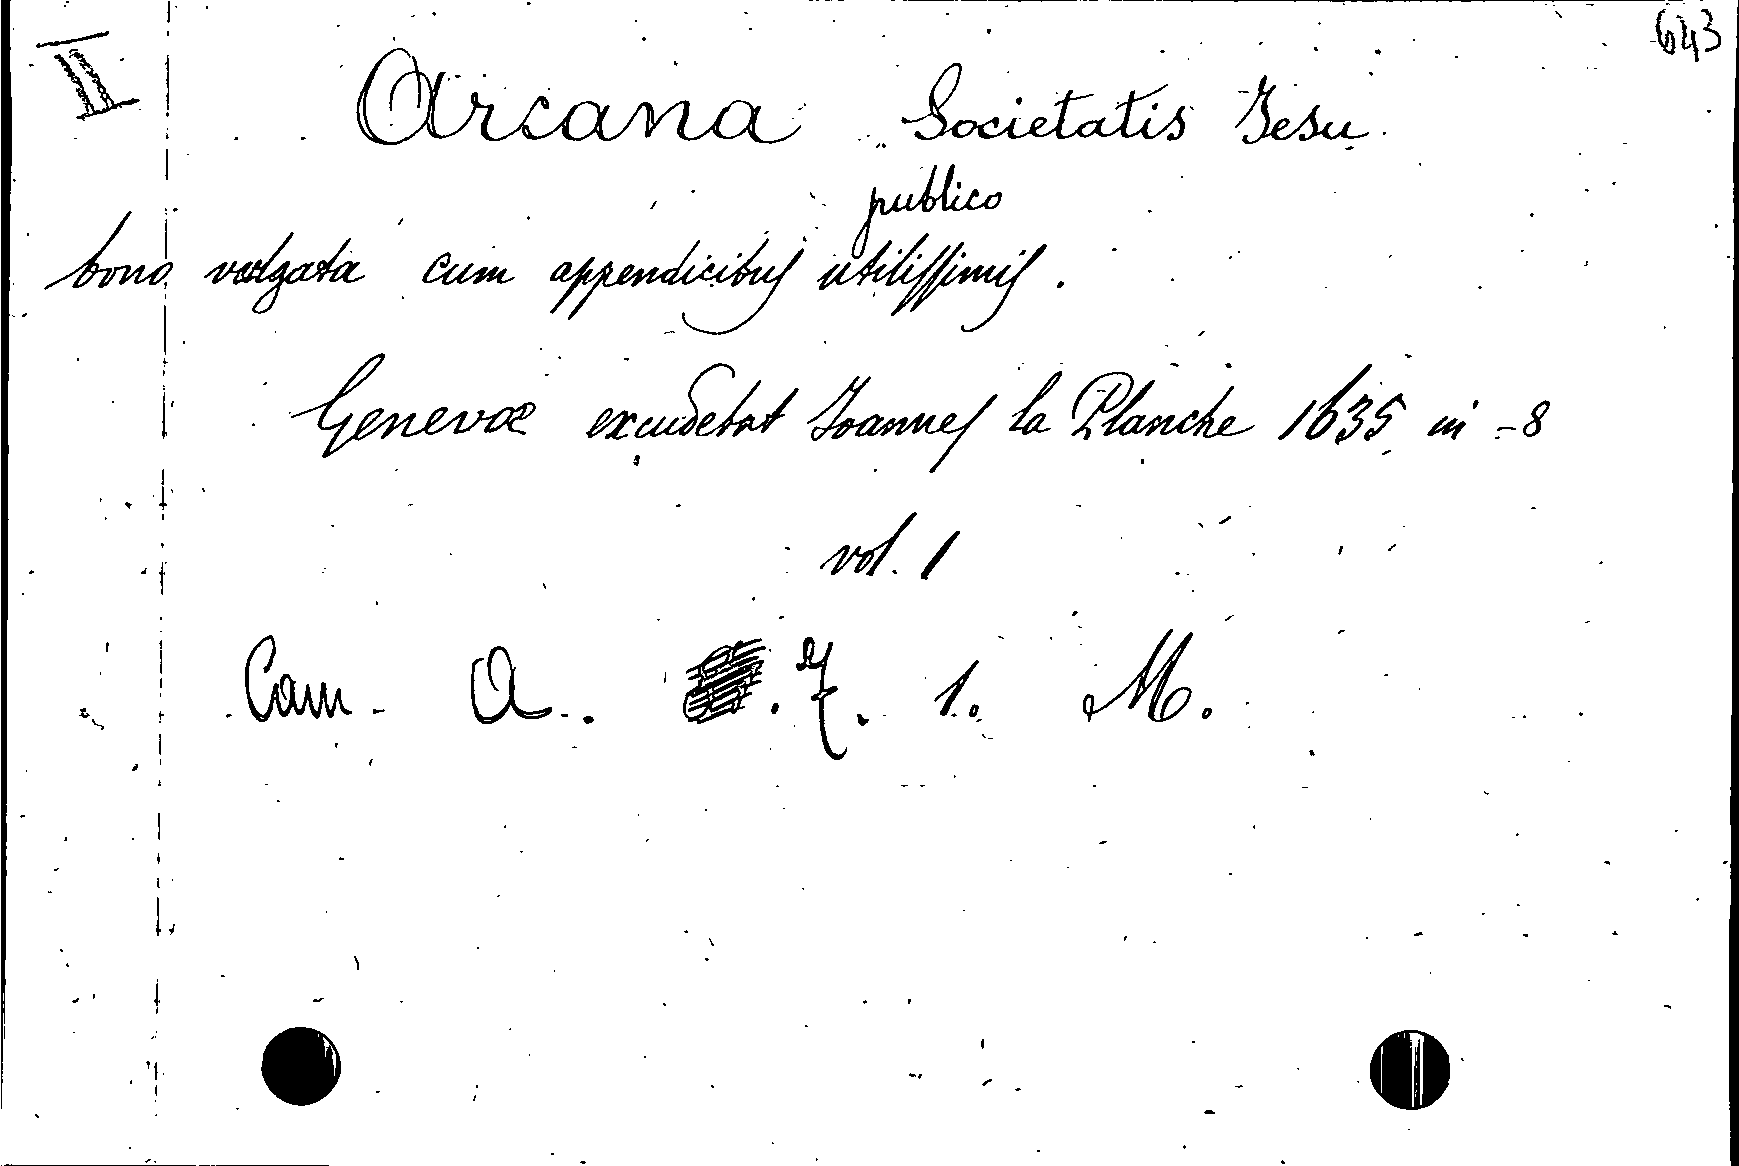 II
643
Arcana Societatis Iesu
publico
bono volgata cum appendicibus utilissimis.
Genevæ excudebat Ioannes la Planche 1635 in-8
vol. 1
Cam. A. 7. 1. M.